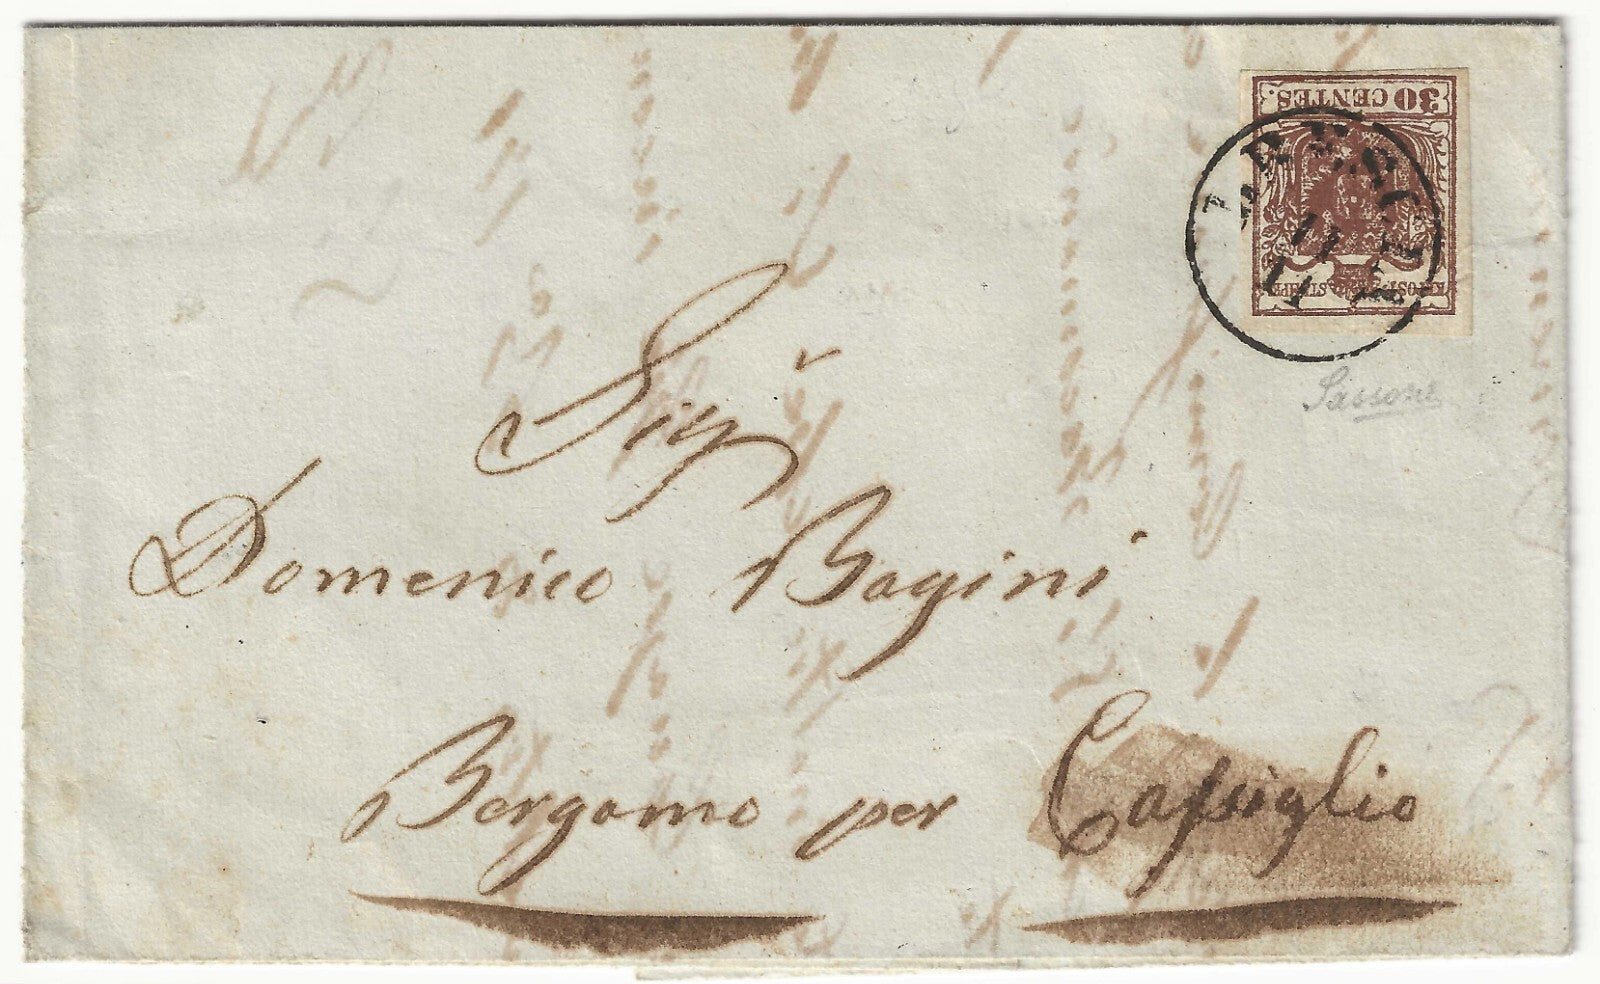 30 CENTES.
KK POST-STEMPEL
11
Sassone
Sig
Domenico Bagini
Bergamo per Cassiglio